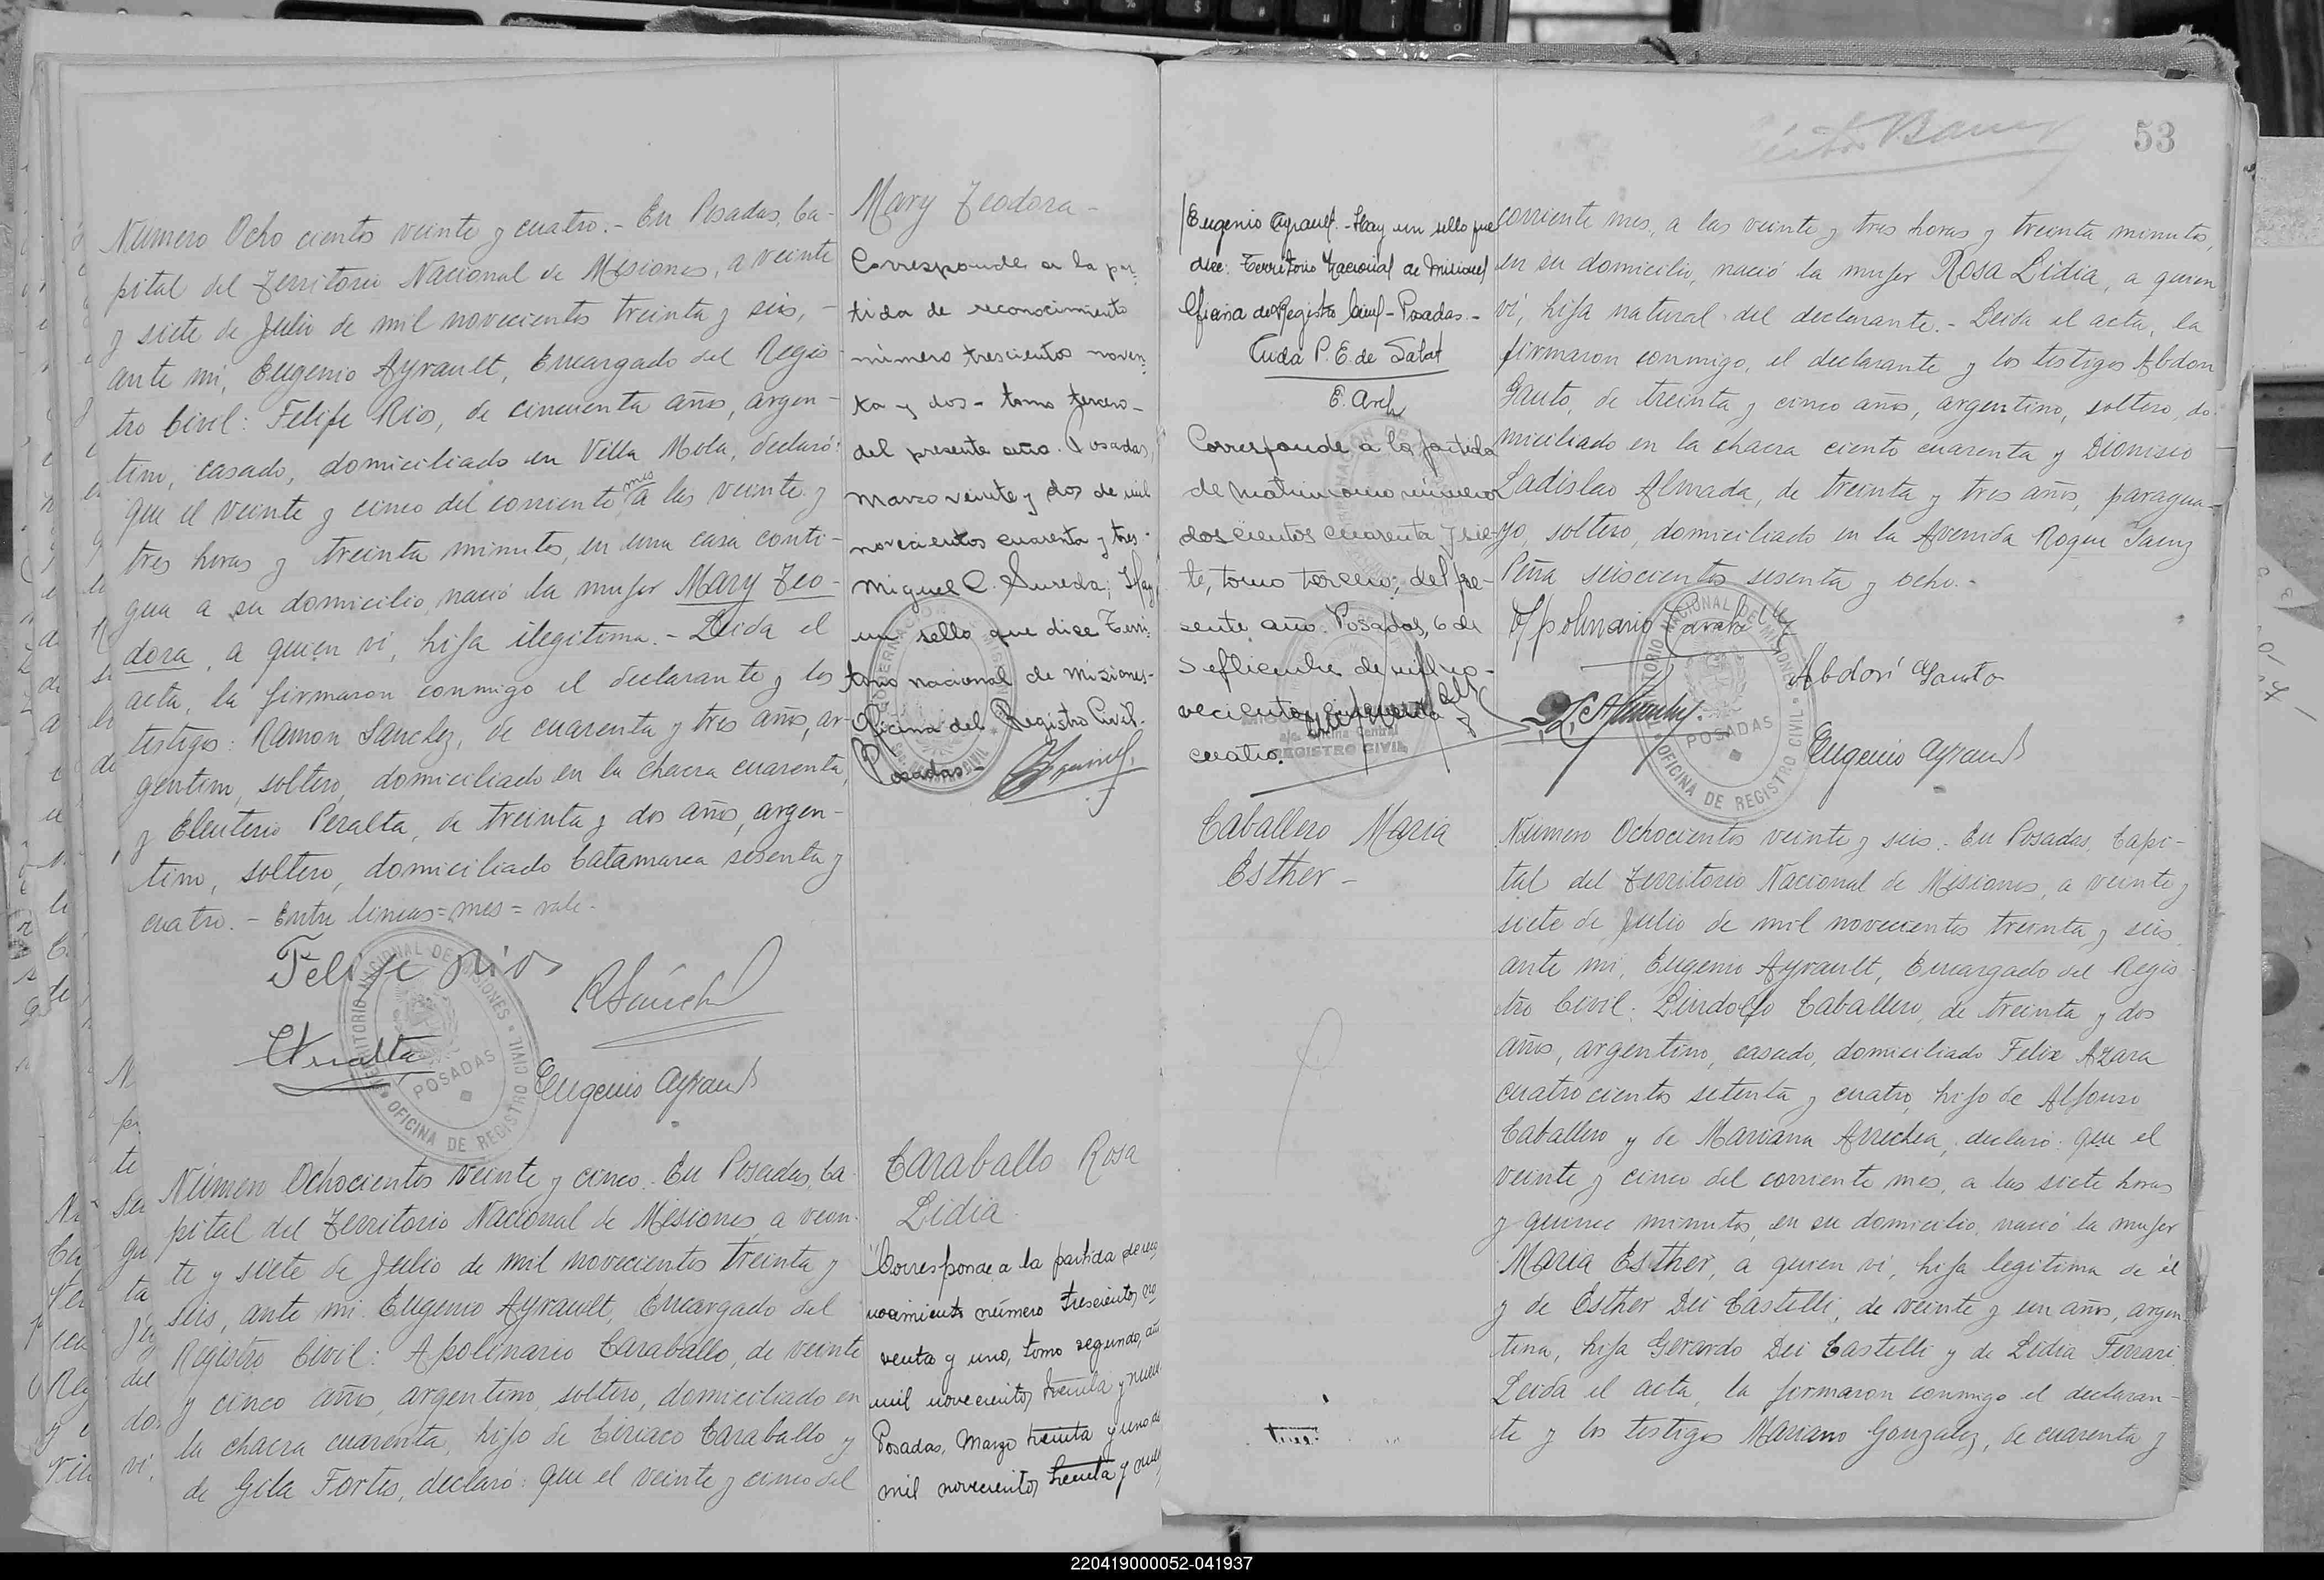 Número Ocho cientos veinte y cuatro.- En Posadas, Ca-
pital del Territorio Nacional de Misiones, a veinte
y siete de Julio de mil novecientos treinta y seis, -
ante mí, Eugenio Ayrault, Encargado del Regis-
tro Civil: Felipe Rios, de cincuenta años, argen-
tino, casado, domiciliado en Villa Mola, declaró:
que el veinte y cinco del corriente mes a las veinte y
tres horas y treinta minutos, en una casa conti-
gua a su domicilio, nació la mujer Mary Teo-
dora, a quien ví, hija ilegitima.- Leida el
acta, la firmaron conmigo el declarante y los
testigos: Ramon Sanchez, de cuarenta y tres años, ar-
gentino, soltero, domiciliado en la chacra cuarenta,
y Eleuterio Peralta, de treinta y dos años, argen-
tino, soltero, domiciliado Catamarca sesenta y
cuatro.- Entre lineas=mes=vale.-
Felipe Rios
RSánchez
EPeralta
Eugenio Ayrault
TERRITORIO NACIONAL DE MISIONES
POSADAS
OFICINA DE REGISTRO CIVIL
Mary Teodora-
Corresponde a la par-
tida de reconocimiento
número trescientos noven-
ta y dos - tomo tercero-
del presente año. Posadas,
marzo veinte y dos de mil
novecientos cuarenta y tres-
Miguel C. Sureda; Hay
un sello que dice Terri-
torio nacional de Misiones-
Oficina del Registro Civil-
Posadas-
Número Ochocientos veinte y cinco. En Posadas, Ca-
pital del Territorio Nacional de Misiones a vein-
te y siete de Julio de mil novecientos treinta y
seis, ante mí Eugenio Ayrault, Encargado del
Registro Civil: Apolinario Caraballo, de veinte
y cinco años, argentino, soltero, domiciliado en
la chacra cuarenta, hijo de Ciriaco Caraballo y
de Gila Fortes, declaró: que el veinte y cinco del
Caraballo Rosa
Lidia
Corresponde a la partida de reco
nocimiento número trescientos no
venta y uno, tomo segundo, año
mil novecientos treinta y nueve
Posadas, Marzo treinta y uno de
mil novecientos treinta y nueve
53
Eugenio Ayrault.-Hay un sello que
dice: Territorio Nacional de Misiones
Oficina de Registro Civil- Posadas.-
Tuda P. E. de Salat
E. Arch
Corresponde a la partida
de matrimonio número
doscientos cuarenta y sie-
te, tomo tercero; del pre-
sente año. Posadas, 6 de
Septiembre de mil no-
vecientos cincuenta y
cuatro.
Oficina Central
REGISTRO CIVIL
corriente mes, a las veinte y tres horas y treinta minutos,
en su domicilio, nació la mujer Rosa Lidia, a quien
ví, hija natural del declarante.- Leida el acta, la
firmaron conmigo, el declarante y los testigos Abdon
Gauto, de treinta y cinco años, argentino, soltero, do-
miciliado en la chacra ciento cuarenta y Dionisio
Ladislao Almada, de treinta y tres años, paragua-
yo, soltero, domiciliado en la Avenida Roque Saenz
Peña seiscientos sesenta y ocho.-
Apolinario Caraballo
Abdon Gauto
Eugenio Ayrault
TERRITORIO NACIONAL DE MISIONES
POSADAS
OFICINA DE REGISTRO CIVIL
Caballero Maria
Esther-
Número Ochocientos veinte y seis. En Posadas, Capi-
tal del Territorio Nacional de Misiones, a veinte y
siete de Julio de mil novecientos treinta y seis,
ante mí, Eugenio Ayrault, Encargado del Regis-
tro Civil: Lindolfo Caballero, de treinta y dos
años, argentino, casado, domiciliado Felix Azara
cuatrocientos setenta y cuatro, hijo de Alfonso
Caballero y de Mariana Arrechea, declaró: que el
veinte y cinco del corriente mes, a las siete horas
y quince minutos, en su domicilio, nació la mujer
Maria Esther, a quien ví, hija legitima de él
y de Esther Dei Castelli, de veinte y un años, argen-
tina, hija Gerardo Dei Castelli y de Lidia Ferrari
Leida el acta, la firmaron conmigo el declaran-
te y los testigos Mariano Gonzalez, de cuarenta y
220419000052-041937